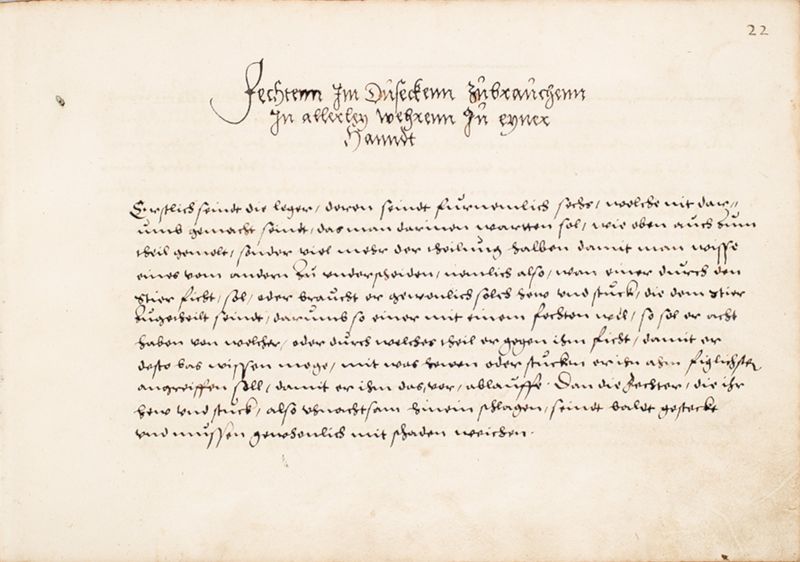 22
Fechtenn Im Duseckenn Zůbrauchenn
In allerley wehrenn Zů eyner
Hanndt
Erstlich seindt die leger, deren seindt fürnemlich sechs, welche nit dar„
umb gemacht seindt, das man darinen wartten sol, wie oben auch zum
theil gemelt, sonder viel mehr der theilung halben damit man wisse
eines vom andern zu underscheiden, nemlich also, wan einer durch den
Stier ficht, sol, oder braucht er gewonlich solch hew und stuck, die dem stier
zugetheilt seindt, darumb so einer mit einem fechten wil, so sol er acht
haben von welcher, oder durch welches theil er gegen ihm ficht, damit er
desto bas wissen mege, mit was hewen oder stucken er ihn ahm figlichsten
angreiffen soll, damit er ihm das, vor, ablauffe. Dan die Fechter, die ihr
hew und stuck, also unachtsam hinein schlagen, seindt baldt gesteckt
und mussen gewohnlich mit schaden weichen.